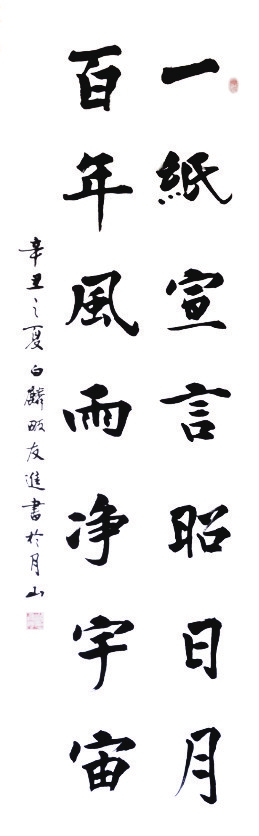 一紙宣言昭日月
百年風雨净宇宙
辛丑之夏白麟畈友進書於月山